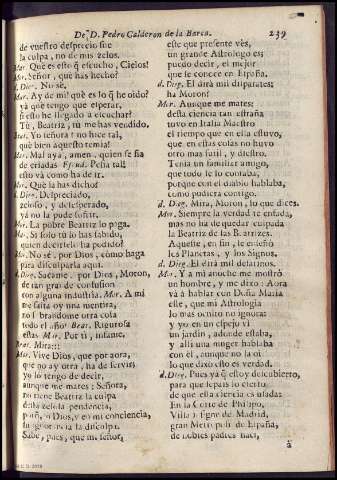 De D. Pedro Calderon de la Barca. 239
de vuestro desprecio fue
la culpa, no de mis zelos.
Mor. Què es esto q̃ escucho, Cielos!
Mor. Señor, que has hecho?
d. Dieg. No sè.
Mor. Ay de mi! què es lo q̃ he oìdo?
yà què tengo que esperar,
si esto he llegado à escuchar?
Tù, Beatriz, tu me has vendido.
Bea. Yo señora? no hice tal,
què bien aquesto temia!
Mor. Mal aya, amen, quien se fia
de criadas
està yo como ha de ir.
Mor. Què la has dicho?
d. Dieg. Despreciado,
zeloso, y desesperado,
yà no la pude sufrir.
Mor. La pobre Beatriz lo paga.
Mor. Si solo tù lo has sabido,
quien decirselo ha podido?
Mor. No sè, por Dios, còmo haga
para disculparla aqui.
Bea. Sacame, por Dios, Moron,
de tan gran de confusion
con alguna industria. Mor. A mi
me falta oy una mentira,
no sobrandome otra cosa
todo el año? Bea. Rigurosa
estàs Mor. Por tì, infame.
Bea. Mira:::
Mor. Vive Dios, que por aora,
que no ay otra, ha de servir;
yo lo tengo de decir,
aunque me mates: Señora,
no tiene Beatriz la culpa
de la zelosa pendencia,
y en mi conciencia,
su ignorancia la disculpa.
Sabe, pues, que mi señor,
este que presente vès,
un grande Astrologo es;
puedo decir, el mejor
que se conoce en España.
d. Dieg. El dirà mil disparates:
ha Moron!
Mor. Aunque me mates:
desta ciencia tan estraña
tuvo en Italia Maestro
el tiempo que en ella estuvo,
que en estas colas no huvo
otro mas sutil, y diestro.
Tenia un familiar amigo,
que todo se lo contaba,
porque con el diablo hablaba,
como pudiera contigo.
d. Dieg. Mira, Moron, lo que dices.
Mor. Siempre la verdad te enfada,
mas no ha de quedar culpada
la Beatriz de las Beatrizes.
Aqueste, en fin, le enseñò
los Planetas, y los Signos.
d. Dieg. El dirà mil desatinos.
Mor. Y à mi anoche me mostrò
un hombre, y me dixo: Aora
và à hablar con Doña Maria
este, que mi Astrologia
lo mas oculto no ignora:
y yo en un espejo vì
un jardin, adonde estaba,
y allì una muger hablaba
con èl, aunque no la oì
lo que dixo esto es verdad.
d. Dieg. Pues yà q̃ estoy descubierto,
para que sepais lo cierto
de que esta ciencia es usada:
En la Corte de Philipo,
Villa insigne de Madrid,
gran Metropoli de España,
de nobles padres nacì,
à